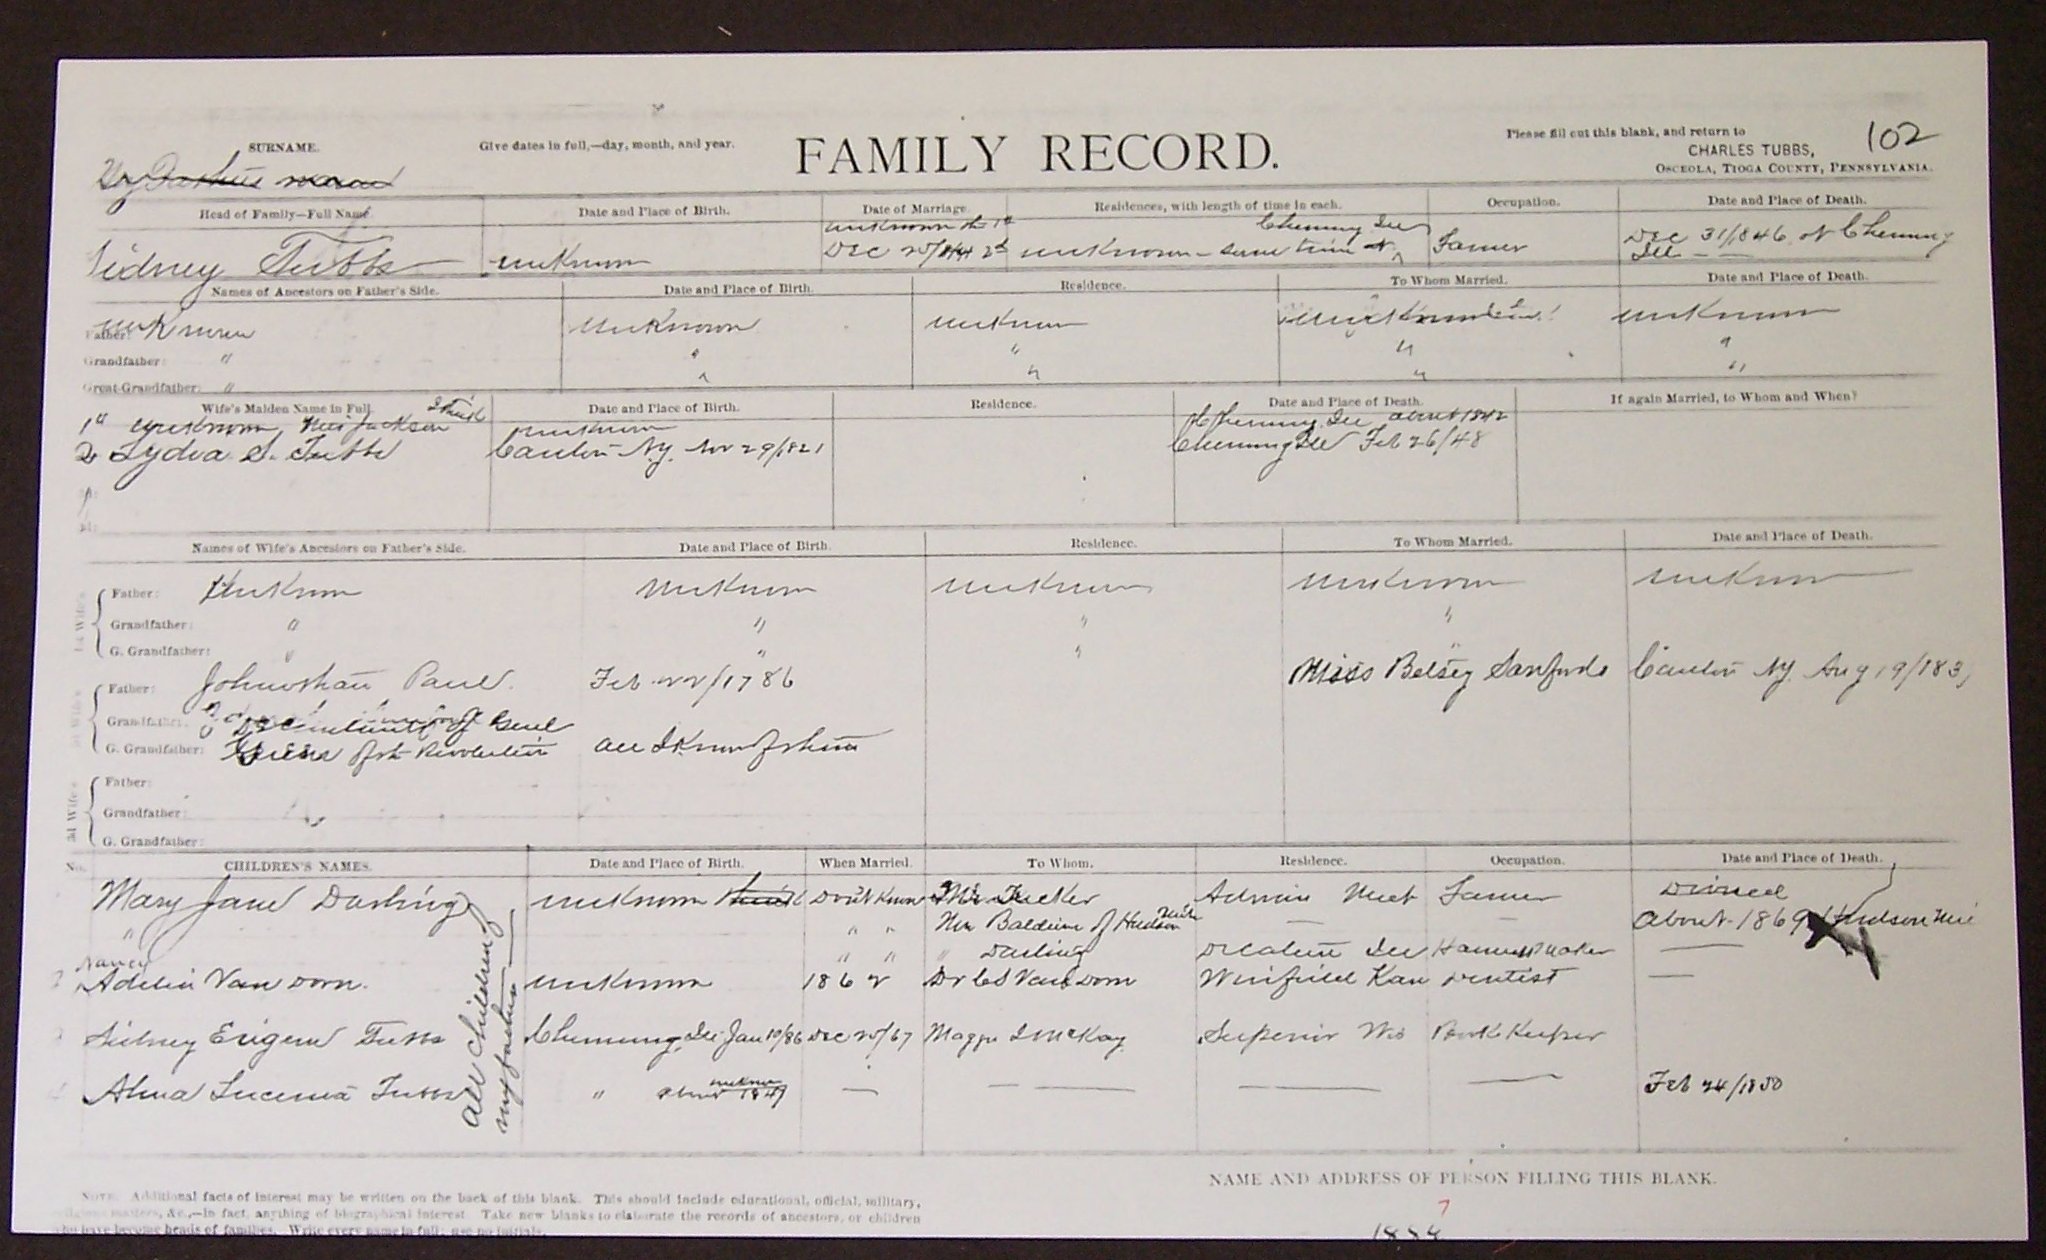 SURNAME.
Give dates in full,—day, month, and year.
FAMILY RECORD.
Please fill out this blank, and return to
CHARLES TUBBS,
OSCEOLA, TIOGA COUNTY, PENNSYLVANIA.
102
My record
Head of Family—Full Name.
Date and Place of Birth.
Date of Marriage.
Residences, with length of time in each.
Occupation.
Date and Place of Death.
Sidney Tubbs
unknown
unknown 1st
Dec 25/44 2d
unknown - some time at Chemung Ill
Farmer
Dec 31/1846 at Chemung
Ill
Names of Ancestors on Father's Side.
Date and Place of Birth.
Residence.
To Whom Married.
Date and Place of Death.
Father: unknown
unknown
unknown
unknown
unknown
Grandfather: "
"
"
"
"
Great-Grandfather: "
"
"
"
"
Wife's Maiden Name in Full.
Date and Place of Birth.
Residence.
Date and Place of Death.
If again Married, to Whom and When?
1st unknown, Miss Jackson I think
unknown
Chemung Ill about 1842
2d Lydia S. Tubbs
Canton N.Y. Nov 29/1821
Chemung Ill Feb 26/48
Names of Wife's Ancestors on Father's Side.
Date and Place of Birth.
Residence.
To Whom Married.
Date and Place of Death.
1st Wife's
Father: unknown
unknown
unknown
unknown
unknown
Grandfather: "
"
"
"
G. Grandfather: "
"
"
"
2d Wife's
Father: Johnathan Paul.
Feb 22/1786
Miss Betsey Sanford
Canton N.Y. Aug 19/183
Grandfather:
of Genl
G. Grandfather: Green of the Revolution
all I know of him
3d Wife's
Father:
Grandfather:
G. Grandfather:
No.
CHILDREN'S NAMES.
Date and Place of Birth.
When Married.
To Whom.
Residence.
Occupation.
Date and Place of Death.
Mary Jane Darling
unknown
Don't know
Mr Tucker
Adrian Mich
Farmer
Divorced
"
" "
Mr Baldwin of Hudson Mich
about 1869 Hudson Mic
" "
" Darling
Decatur Ill
Harness Maker
Nancy
Adelia Van Dorn.
unknown
1862
Dr C S Van Dorn
Winfield Kan
Dentist
Sidney Eugene Tubbs
Chemung, Ill Jan 10/86
Dec 25/67
Maggie I McKay
Superior Wis
Book Keeper
Alma Lucerna Tubbs
" about 1847
unknown
Feb 24/1850
All children of
my father
NOTE. Additional facts of interest may be written on the back of this blank. This should include educational, official, military,
religious matters, &c.,—in fact, anything of biographical interest. Take new blanks to elaborate the records of ancestors, or children
who have become heads of families. Write every name in full; use no initials.
NAME AND ADDRESS OF PERSON FILLING THIS BLANK.
7
1884